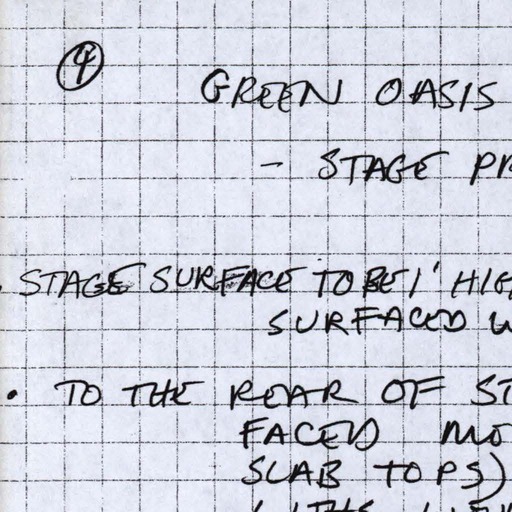 4
GREEN OASIS
- STAGE PR
• STAGE SURFACE TO BE 1' HIG
SURFACED W
• TO THE REAR OF ST
FACED MO
SLAB TOPS)